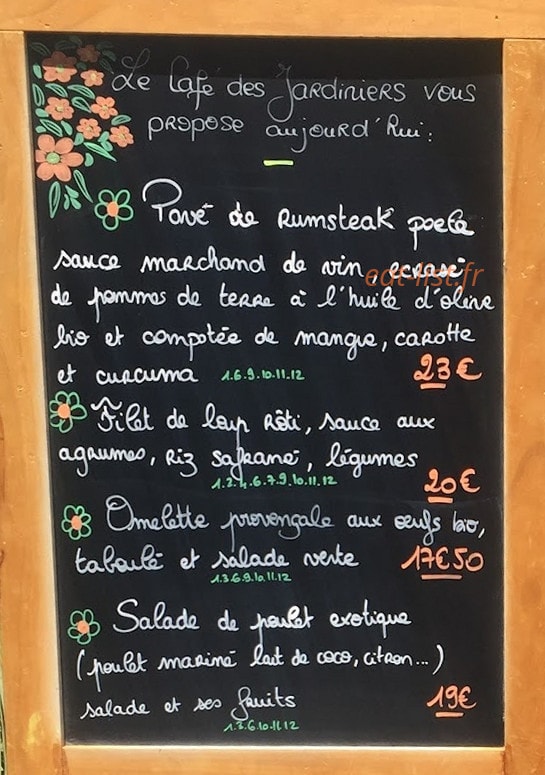 Le Café des Jardiniers vous
propose aujourd'hui :
Pavé de Rumsteak poelé
sauce marchand de vin ecrasé
eat-list.fr
de pommes de terre à l'huile d'olive
bio et compotée de mangue, carotte
et curcuma 1.6.9.10.11.12 23€
Filet de loup Rôti, sauce aux
agrumes, Riz safrané, légumes
1.2.4.6.7.9.10.11.12 20€
Omelette provençale aux œufs bio,
taboulé et salade verte 17€50
1.3.6.9.10.11.12
Salade de poulet exotique
(poulet mariné lait de coco, citron...)
salade et ses fruits 19€
1.3.6.10.11.12